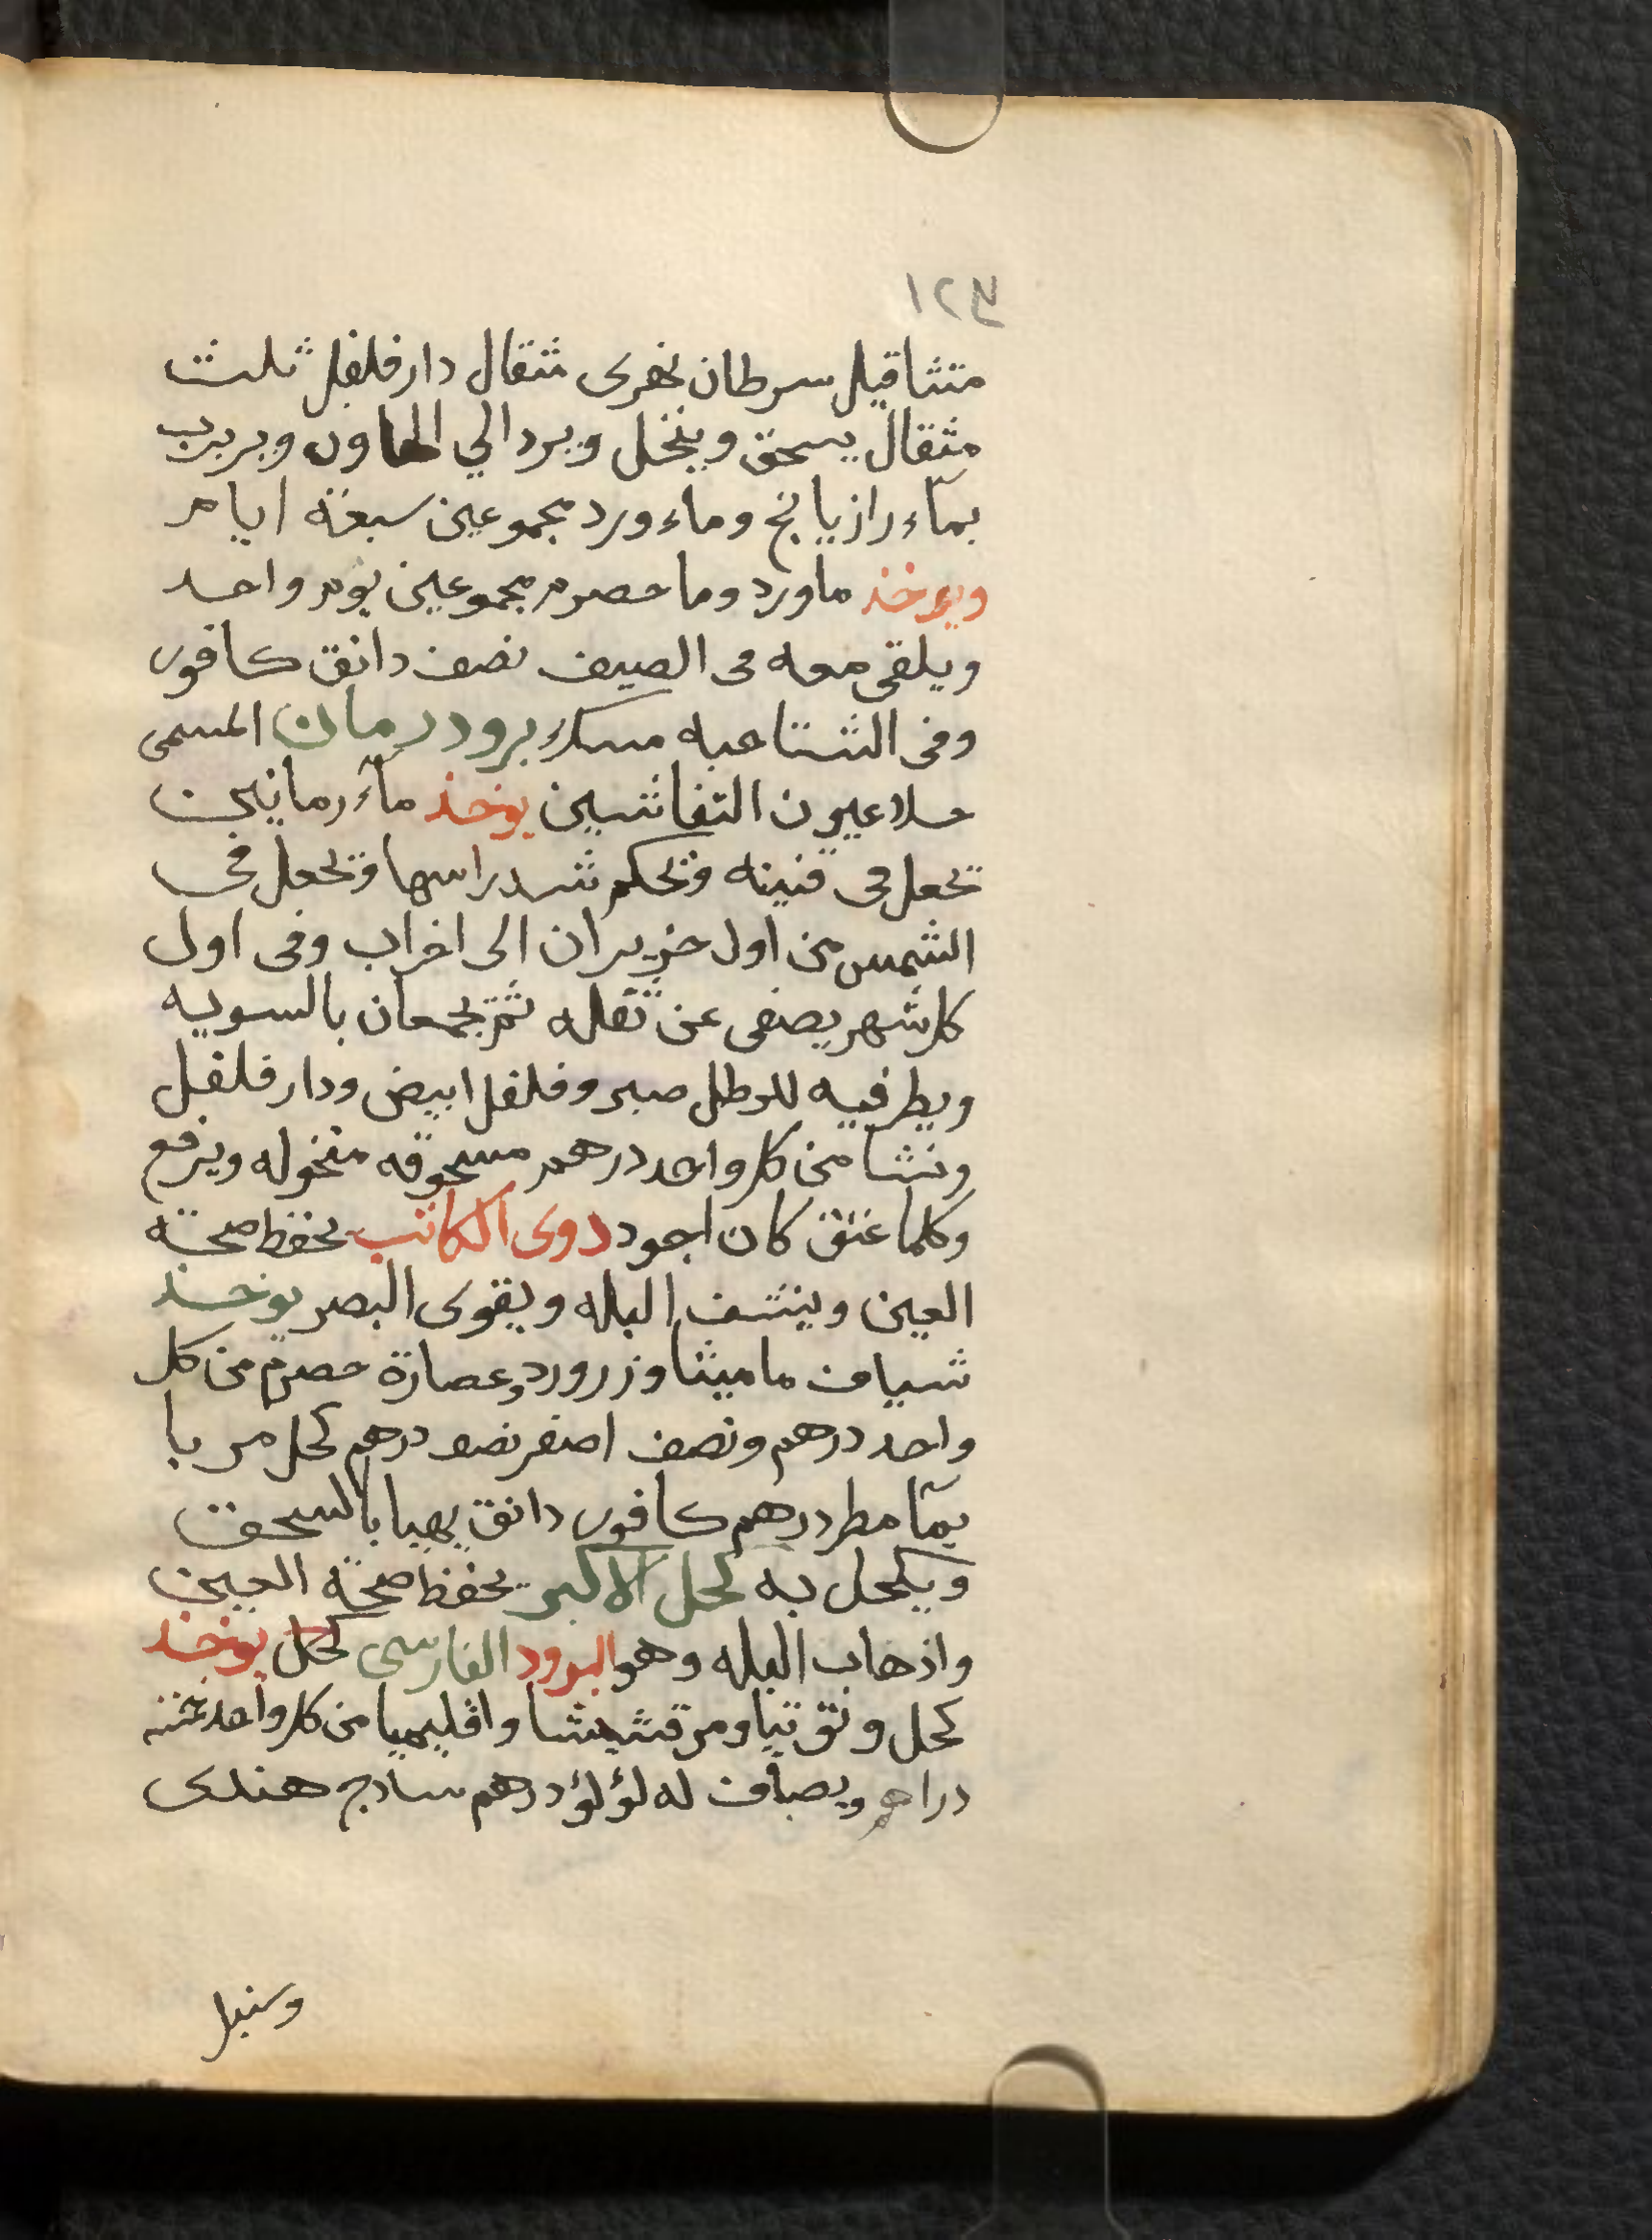 ١٢٤
متثاقيل سرطان نهرى مثقال دارفلفل ثلث
مثقال يسحق وينخل ويرد الي الهاون ويربرب
بمآء رازيانج وماء ورد مجموعين سبعة ايام
ويوخذ ماورد وما حصرم مجموعين يوم واحد
ويلقى معه فى الصيف نصف دانق كافور
وفى الشتا حبه مسك برود رمان المسمى
جلا عيون النقاشين يوخذ مآء رمانين
تجعل فى قنينه وتحكم شد راسها وتجعل فى
الشمس من اول حزيران الى اخراب وفى اول
كل شهر يصفى عن ثفله ثم تجمعان بالسويه
ويطرفيه للرطل صبر وفلفل ابيض ودارفلفل
ونشا من كل واحد درهم مسحوقه منخوله ويرفع
وكلما عتق كان اجود دوى الكاتب يحفظ صحة
العين وينشف البله ويقوى البصر يوخذ
شياف ماميثا وزرورد وعصارة حصرم من كل
واحد درهم ونصف اصفر نصف درهم كحل مربا
بمآ مطر درهم كافور دانق يهيا بالسحق
ويكحل به كحل الاكبر يحفظ صحة العين
واذهاب البله وهو البرود الفارسى كحل يوخذ
كحل وتوتيا ومرقشيشا واقليميا من كل واحد
دراهم ويصاف له لؤلؤ درهم سادج هندى
وسنبل